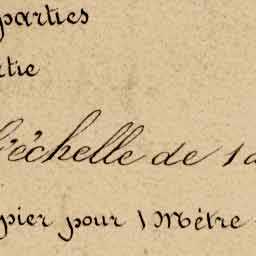 parties
rtie
l'échelle de 1 a
pier pour 1 Mètre